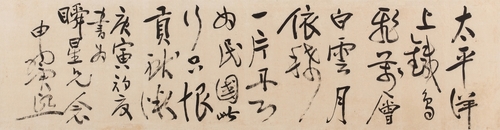 太平洋
上鐵鳥
飛萬層
白雲月
依稀
一片丹心
為民國此
行只恨
貢獻微
庚寅初夏
書為
瞬星兄念